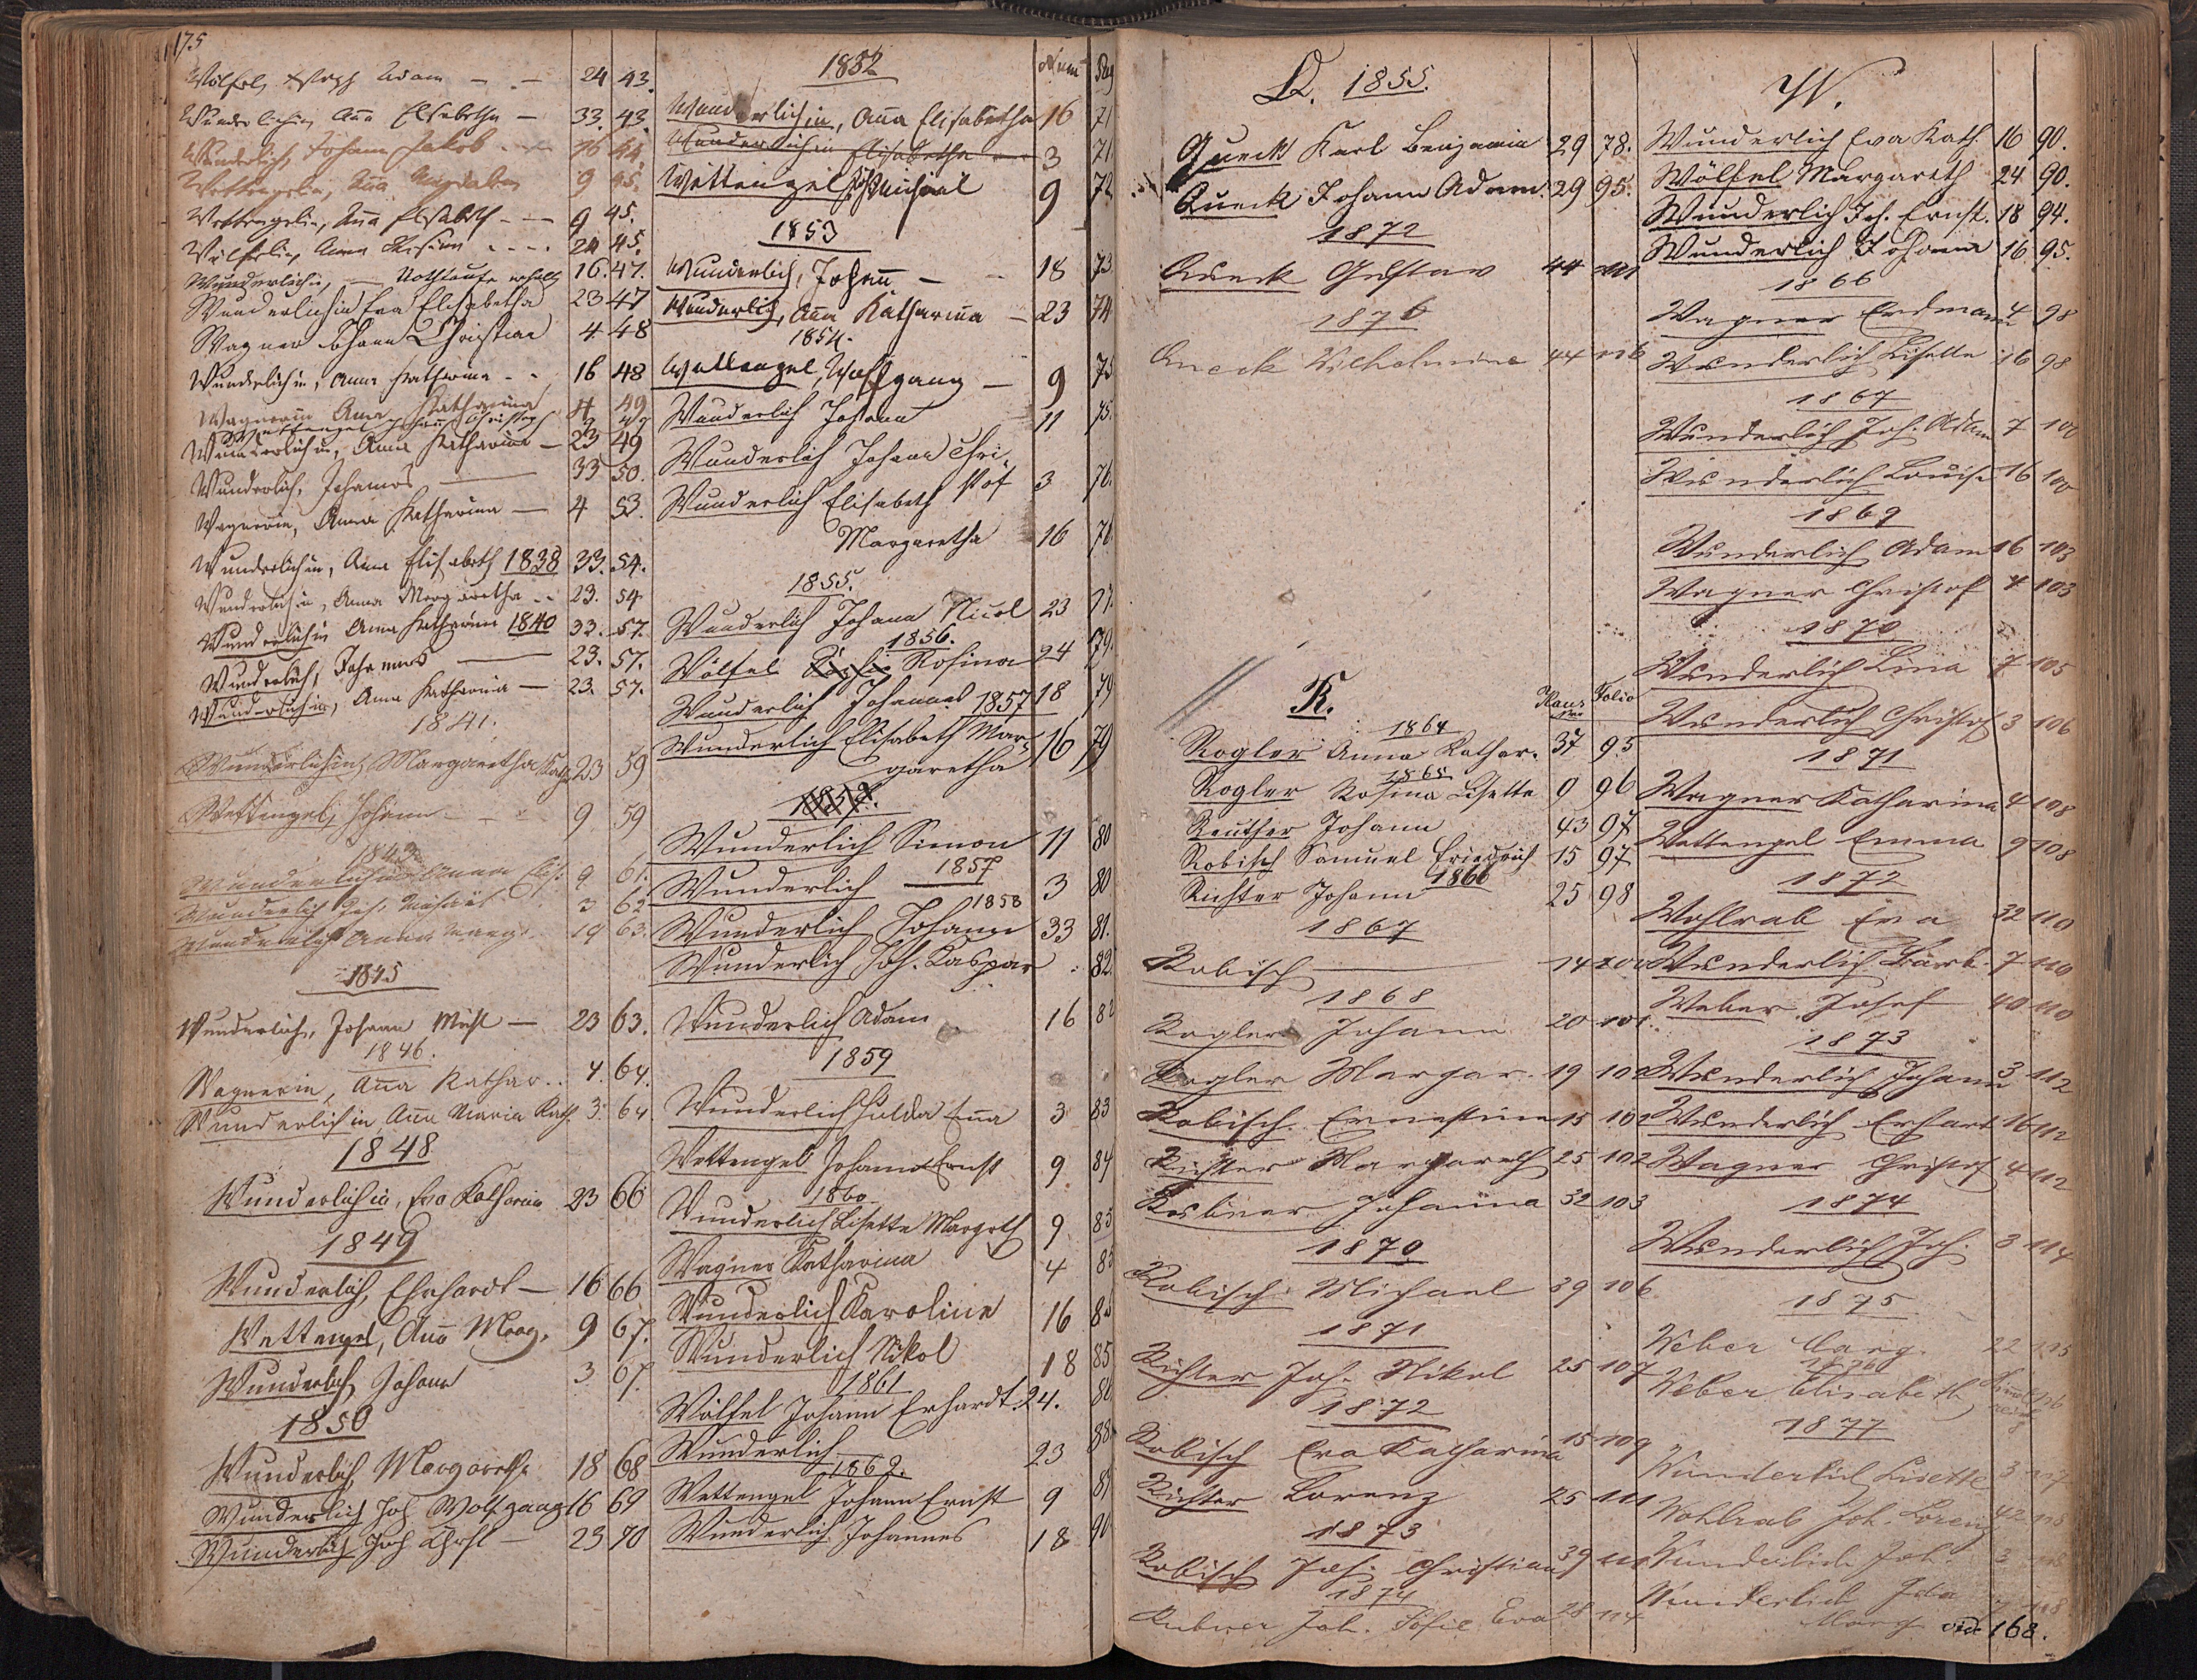 175
Wölfel, Adam — — 24 43.
Wunderlichin Ana Elisabetha — 33. 43.
Wunderlich, Johann Jakob 16 44.
Wettengelin, Ana Magdalena 9 45.
Wettengelin, Ana Elisabeth — — 9 45.
Wölfelin, Anna 24 45.
Wunderlichin, — Nothtaufe erhalt 16. 47.
Wunderlichin Eva Elisabetha 23 47
Wagner Johann Christian 4. 48
Wunderlichin, Anna Katharina - - 16 48
Wagnerin Ana Katharina 4 49
Wettengel Johann Christoph 9 49
Wunderlichin, Anna Katharina — 23 49
Wunderlich, Johannes — 33 50.
Wagnerin, Anna Katharina — 4 53.
Wunderlichin, Anna Elisabeth 1838 33. 54.
Wunderlichin, Anna Margaretha - - 23. 54
Wunderlichin Anna Katharina 1840 33. 57.
Wunderlich, Johannes — 23. 57.
Wunderlichin, Anna Katharina — 23. 57.
1841.
Wunderlichin, Margaretha Kath 23 59
Wettengel, Johann 9. 59
Wunderlichin Anna Elis: 9 61.
Wunderlich Joh. Michael 3 62
Wunderlich Anna Marg. 19 63.
1845
Wunderlich, Johann Michl — 23 63.
1846.
Wagnerin, Ana Kathar. . 4. 64.
Wunderlichin, Ana Maria Kath. 3. 64
1848
Wunderlichin, Eva Katharina 23 66
1849
Wunderlich, Ehrhardt — 16 66
Wettengel, Ana Marg. 9 67.
Wunderlich Johann 3 67.
1850
Wunderlich, Margaretha 18 68
Wunderlich Joh Wolfgang 16 69
Wunderlich Joh Chrst — 23 70
1852 Num Pag
Wunderlichin, Ana Elisabetha 16 71
Wunderlichin Elisabetha 3 71
Wettengel Joh Michael 9 72
1853
Wunderlich, Johann — - 18 73.
Wunderlich, Ana Katharina — 23 74
1854.
Wettengel, Wolfgang — 9 75
Wunderlich Johann 11 75.
Wunderlich Johann Chri-
stof 3 76.
Wunderlich Elisabeth
Margaretha 16 76
1855.
Wunderlich Johann Nicol 23 77.
1856.
Wölfel Rosina 24 79.
Wunderlich Johannes 1857 18 79
Wunderlich Elisabeth Mar-
garetha 16 79
1857.
Wunderlich Simon 11 80
1857
Wunderlich 3 80
1858
Wunderlich Johann 33 81.
Wunderlich, Joh. Kaspar 82.
Wunderlich Adam 16 82
1859
Wunderlich Hulda Ema 3 83
Wettengel Johann Ernst 9 84
1860
Wunderlich Lisette Margreth 9 85
Wagner Katharina 4 85
Wunderlich Karoline 16 85
Wunderlich Nikol 18 85
1861
Wölfel Johann Erhardt. 24. 86
Wunderlich — 23 88
1862.
Wettengel Johann Ernst 9 89
Wunderlich Johannes 18 90
Q. 1855.
Queck Karl Benjamin 29 78.
Queck Johann Adam. 29 95.
1872
Queck Gustav 44 111
1876
Queck Wilhelmine 44 116
R.
Haus No Folio
1864
Rogler Anna Kathar. 37 95
1865
Rogler Rosina Lisette 9 96
Reuther Johann 43 97
Robisch Samuel Friedrich 15 97
1866
Richter Johann 25 98
1867
Robisch — 14 100
1868
Rogler Johann 20 101.
Rogler Margar. 19 102
Robisch Ernestine 15 102
Richter Margareth 25 102
Johanna 32 103
1870
Robisch Michael 39 106
1871
Richter Joh. Nikol 25 107
1872
Robisch Eva Katharina 15 109
Richter Lorenz 25 111
1873
Robisch Joh. Christian 39 111
1874
Rubner Joh. Sofie Eva 28 114
W.
Wunderlich Eva Kath. 16 90.
Wölfel Margareth 24 90.
Wunderlich Joh. Ernst. 18 94.
Wunderlich Johann 16 95.
1866
Wagner Erdmann 4 98
Wunderlich Lisette 16 98
1867
Wunderlich Joh. Adam 7 100
Wunderlich Louise 16 100
1869
Wunderlich Adam 16 103
Wagner Christof 4 103
1870
Wunderlich Lina 7 105
Wunderlich Christof 3 106
1871
Wagner Katharina 4 108
Wettengel Emma 9 108
1872
Wohlrab Eva 32 110
Wunderlich Barb. 7 110
Weber Josef 40 110
1873
Wunderlich Johann 3 112
Wunderlich Erhart 16 112
Wagner Christof 4 112
1874
Wunderlich Joh. 3 114
1875
Weber Marg. 22 115
1876
Weber Elisabeth 116
1877
Wunderlich Lisette 3 117
Wohlrab Joh. Lorenz 42 118
Wunderlich Joh. 3 118
Wunderlich 118
Marg. vide 168.